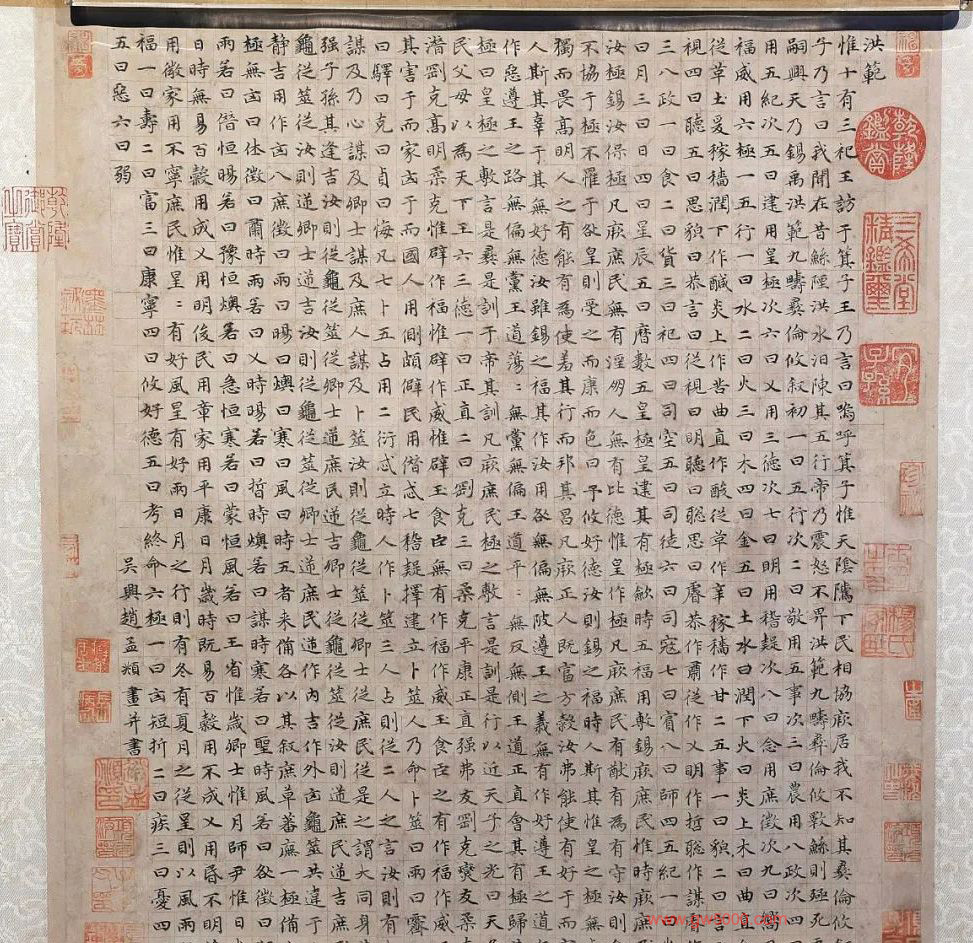 洪範
惟十有三祀王訪于箕子王乃言曰嗚呼箕子惟天陰騭下民相協厥居我不知其彝倫攸
子乃言曰我聞在昔鯀陻洪水汩陳其五行帝乃震怒不畀洪範九疇彝倫攸斁鯀則殛死
嗣興天乃錫禹洪範九疇彝倫攸敘初一曰五行次二曰敬用五事次三曰農用八政次四
用五紀次五曰建用皇極次六曰乂用三德次七曰明用稽疑次八曰念用庶徵次九曰嚮
福威用六極一五行一曰水二曰火三曰木四曰金五曰土水曰潤下火曰炎上木曰曲直
從革土爰稼穡潤下作鹹炎上作苦曲直作酸從革作辛稼穡作甘二五事一曰貌二曰言
視四曰聽五曰思貌曰恭言曰從視曰明聽曰聰思曰睿恭作肅從作乂明作哲聰作謀睿作
三八政一曰食二曰貨三曰祀四曰司空五曰司徒六曰司寇七曰賓八曰師四五紀一曰
曰月三曰日四曰星辰五曰曆數五皇極皇建其有極斂時五福用敷錫厥庶民惟時厥庶民
汝極錫汝保極凡厥庶民無有淫朋人無有比德惟皇作極凡厥庶民有猷有為有守汝則
不協于極不罹于咎皇則受之而康而色曰予攸好德汝則錫之福時人斯其惟皇之極無
獨而畏高明人之有能有為使羞其行而邦其昌凡厥正人既富方穀汝弗能使有好于而
人斯其辜于其無好德汝雖錫之福其作汝用咎無偏無陂遵王之義無有作好遵王之道
作惡遵王之路無偏無黨王道蕩:無黨無偏王道平:無反無側王道正直會其有極歸
極曰皇極之敷言是彝是訓于帝其訓凡厥庶民極之敷言是訓是行以近天子之光曰
民父母以為天下王六三德一曰正直二曰剛克三曰柔克平康正直强弗友剛克燮友
潛剛克高明柔克惟辟作福惟辟作威惟辟玉食臣無有作福作威玉食臣之有作福作威
其害于而家凶于而國人用側頗僻民用僭忒七稽疑擇建立卜筮人乃命卜筮曰雨曰霽
曰驛曰克曰貞曰悔凡七卜五占用二衍忒立時人作卜筮三人占則從二人之言汝則有
謀及乃心謀及卿士謀及庶人謀及卜筮汝則從龜從筮從卿士從庶民從是之謂大同身
强子孫其逢吉汝則從龜從筮從卿士逆庶民逆吉卿士從龜從筮從汝則逆庶民逆吉庶
龜從筮從汝則逆卿士逆吉汝則從龜從筮逆卿士逆庶民逆作內吉作外凶龜筮共違于
靜吉用作凶八庶徵曰雨曰暘曰燠曰寒曰風曰時五者来備各以其敘庶草蕃廡一極備
極無凶曰休徵曰肅時雨若曰乂時暘若曰哲時燠若曰謀時寒若曰聖時風若曰咎徵曰
雨若曰僭恒暘若曰豫恒燠若曰急恒寒若曰蒙恒風若曰王省惟歲卿士惟月師尹惟日
日時無易百穀用成乂用明俊民用章家用平康日月歲時既易百穀用不成乂用昏不明
用微家用不寧庶民惟星:有好風星有好雨日月之行則有冬有夏月之從星則以風雨
福一曰壽二曰富三曰康寧四曰攸好德五曰考終命六極一曰凶短折二曰疾三曰憂四
五曰惡六曰弱
吳興趙孟頫畫并書
乾隆鑑賞
三希堂精鑑璽
宜子孫
乾隆御覽之寶